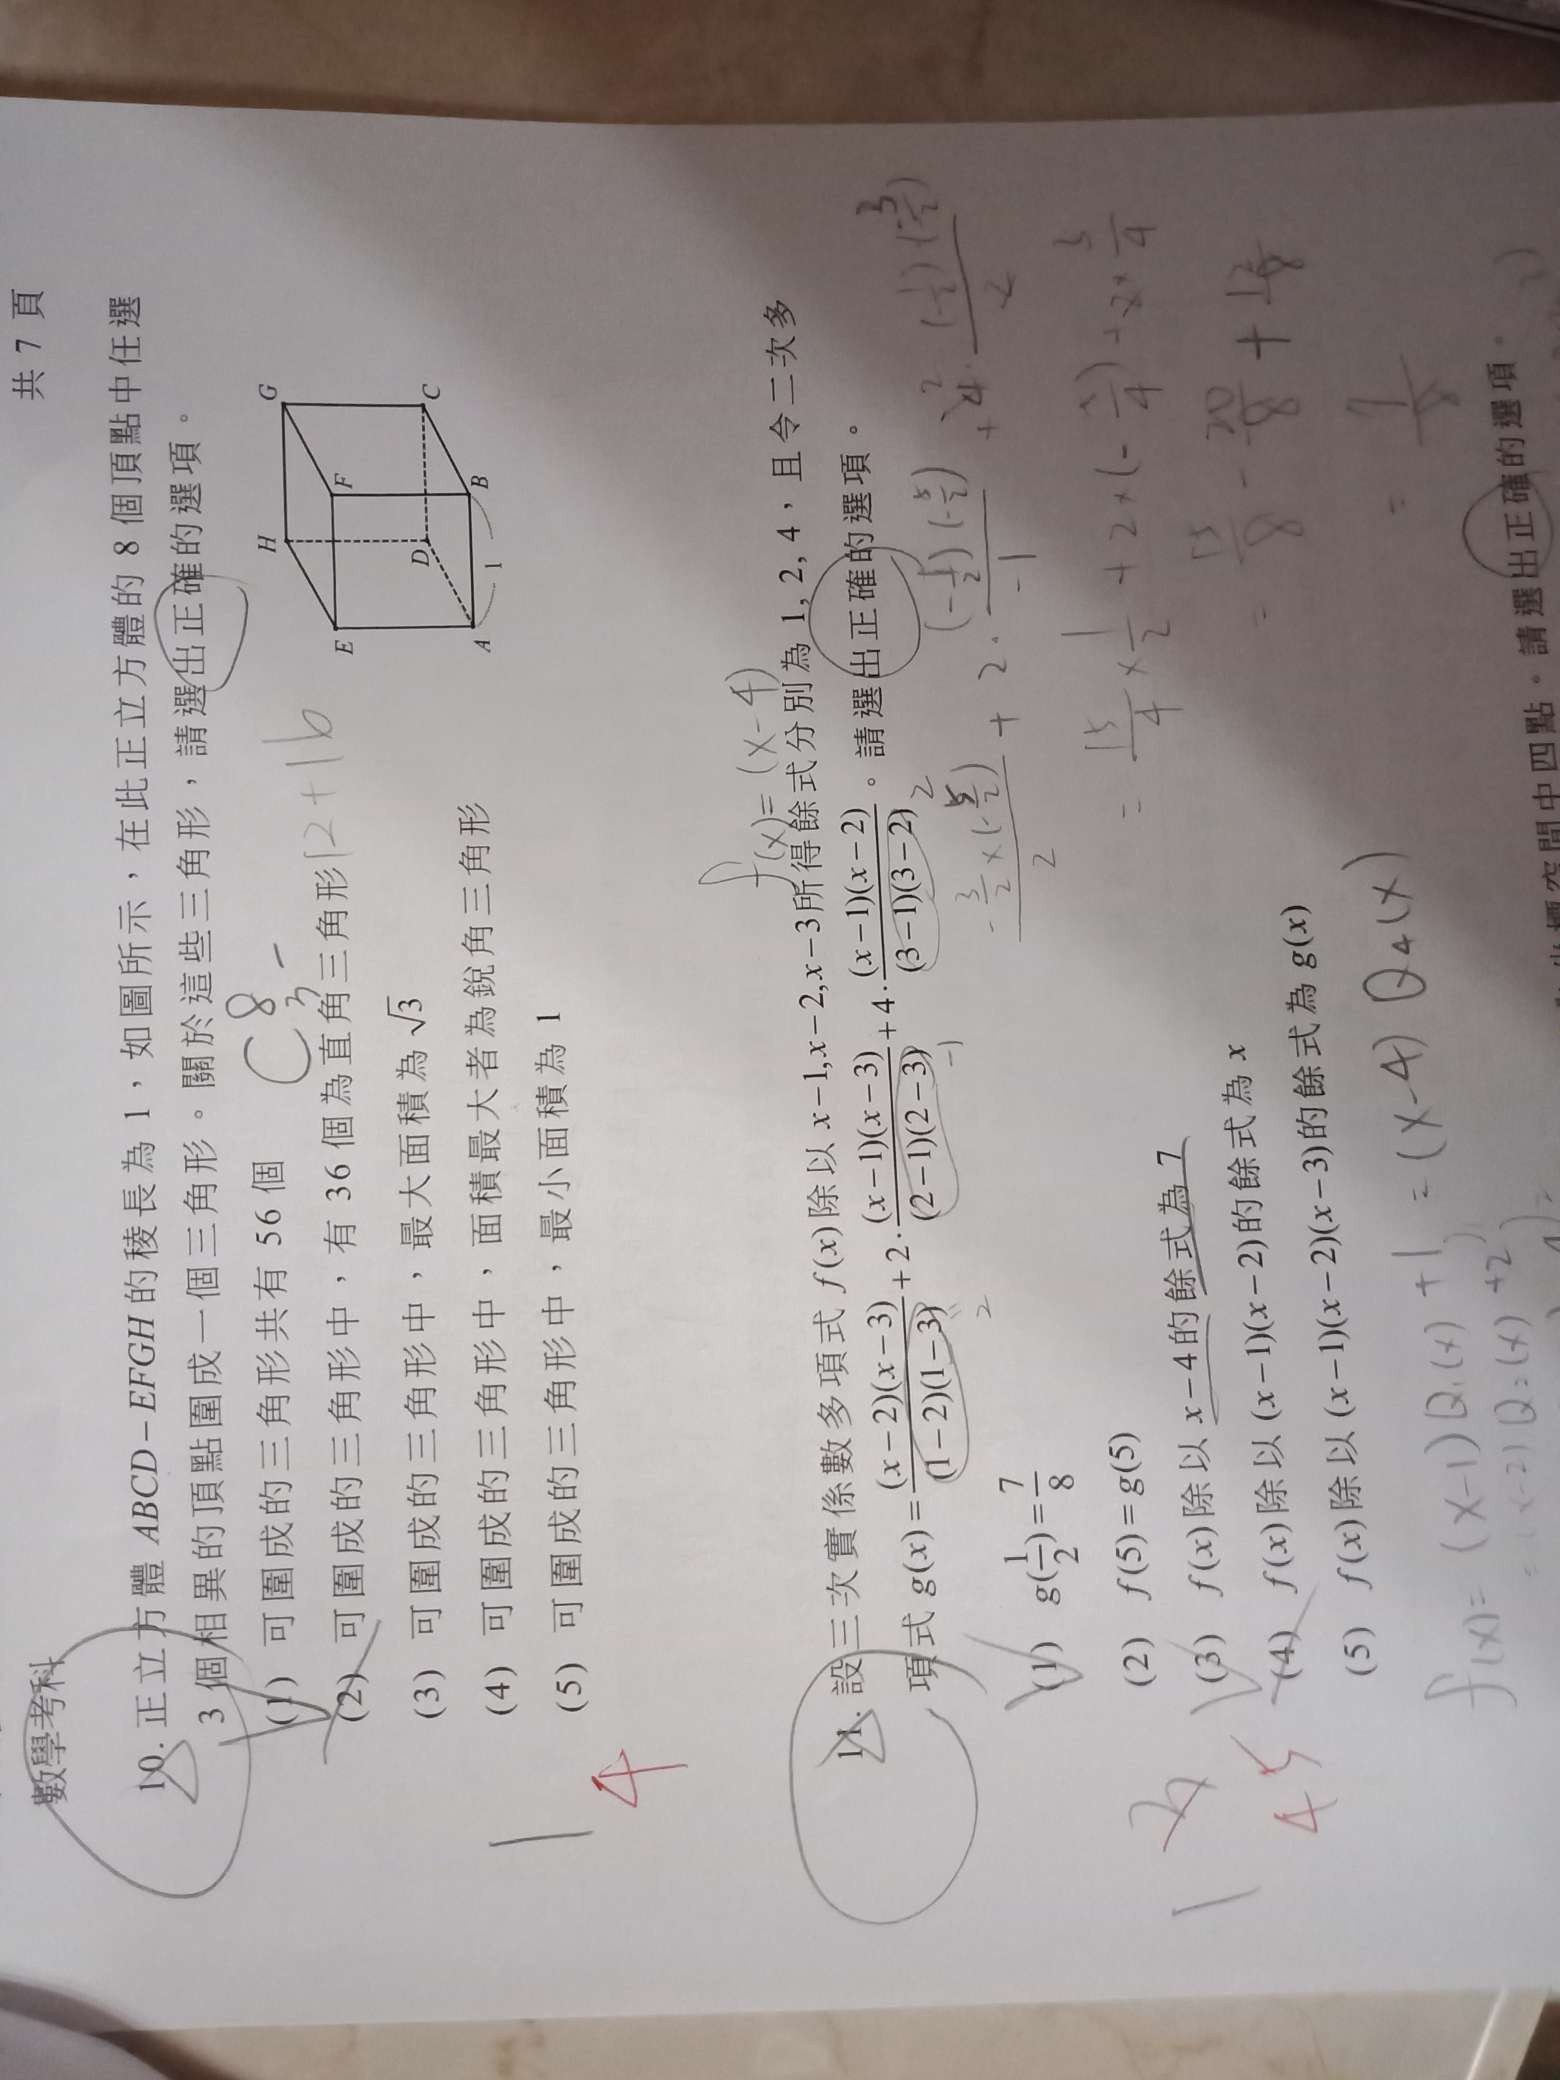 共 7 頁
數學考科
10. 正立方體 ABCD－EFGH 的稜長為 1，如圖所示，在此正立方體的 8 個頂點中任選
3 個相異的頂點圍成一個三角形。關於這些三角形，請選出正確的選項。
(1) 可圍成的三角形共有 56 個
C 8 3
(2) 可圍成的三角形中，有 36 個為直角三角形
12+16
(3) 可圍成的三角形中，最大面積為 √3
(4) 可圍成的三角形中，面積最大者為銳角三角形
(5) 可圍成的三角形中，最小面積為 1
H G
E F
D C
A 1 B
1 4
f(x)=(x-4)
11. 設三次實係數多項式 f(x) 除以 x－1, x－2, x－3 所得餘式分別為 1, 2, 4，且令二次多
項式 g(x) = (x－2)(x－3)/(1－2)(1－3) + 2·(x－1)(x－3)/(2－1)(2－3) + 4·(x－1)(x－2)/(3－1)(3－2)。請選出正確的選項。
2 -1 2
(1) g(1/2) = 7/8
(2) f(5) = g(5)
(3) f(x) 除以 x－4 的餘式為 7
(4) f(x) 除以 (x－1)(x－2) 的餘式為 x
(5) f(x) 除以 (x－1)(x－2)(x－3) 的餘式為 g(x)
1
4 5
= 15/4 × 1/2 + 2×(-5/4) +
= 7/8
f(x)= (x-1)Q1(x)+1 = (x-4)Q4(x)
= (x-2)Q2(x)+2
空間中四點。請選出正確的選項。